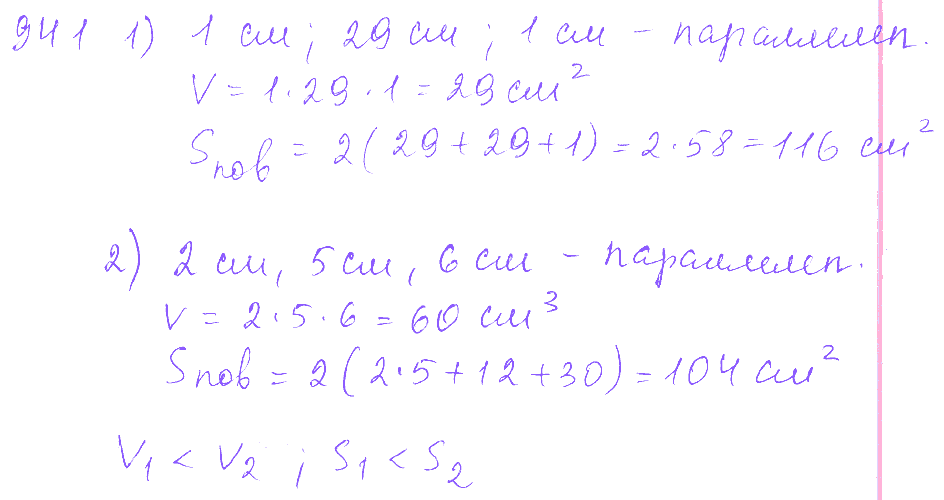 941 1) 1 см; 29 см; 1 см - параллелеп.
V = 1·29·1 = 29 см²
Sпов = 2(29+29+1) = 2·58 = 116 см²
2) 2 см, 5 см, 6 см - параллелеп.
V = 2·5·6 = 60 см³
Sпов = 2(2·5+12+30) = 104 см²
V₁ < V₂ ; S₁ < S₂